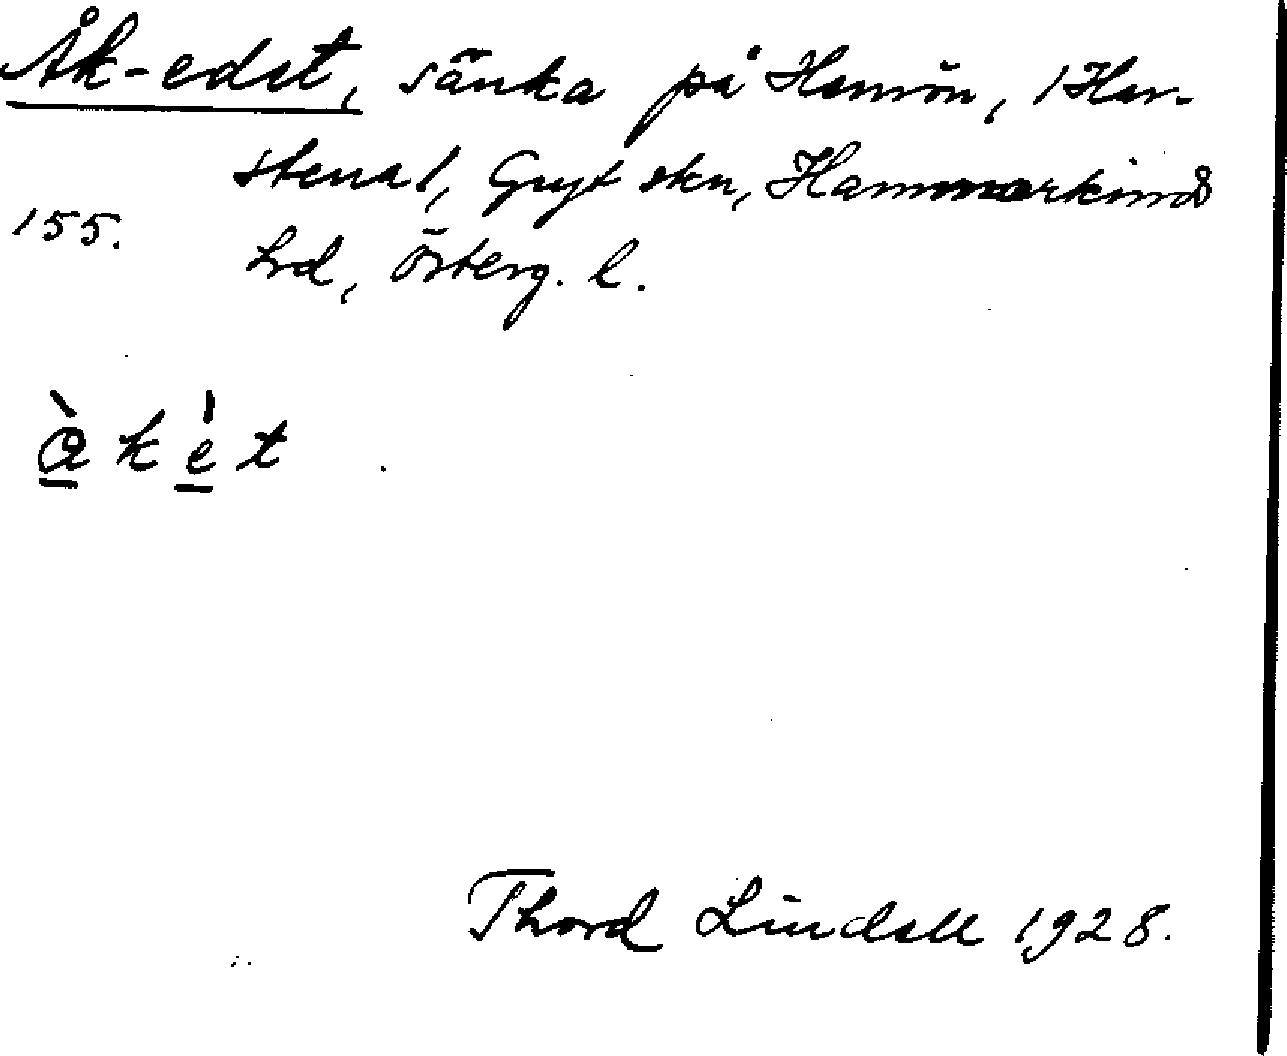 Åk-edet, sänka på Hamnön, /Har-
stena/, Gryt skn, Hammarkinds
155.
hrd, Österg. l.
å̀ k è t
Thord Lindell 1928.